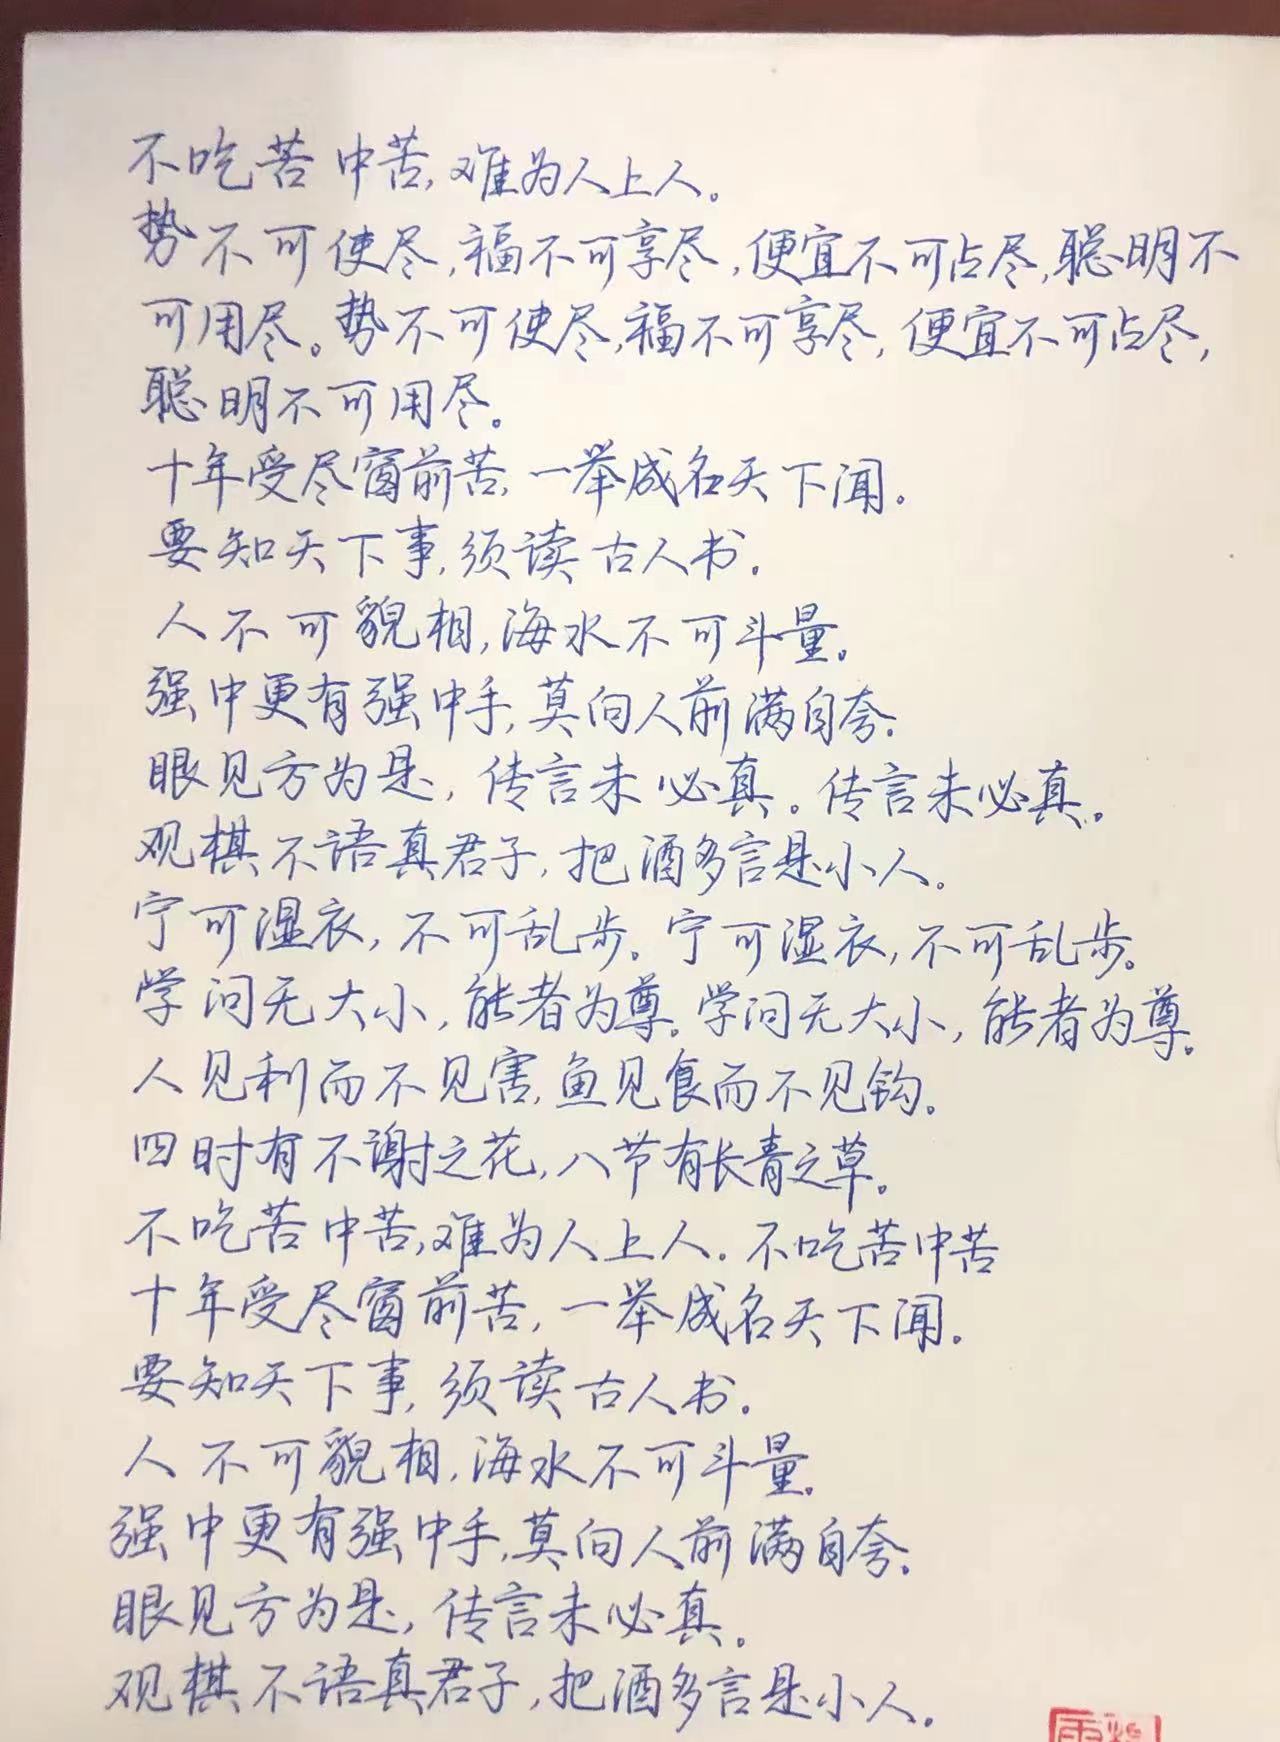 不吃苦中苦,难为人上人。
势不可使尽,福不可享尽,便宜不可占尽,聪明不
可用尽。势不可使尽,福不可享尽,便宜不可占尽,
聪明不可用尽。
十年受尽窗前苦,一举成名天下闻。
要知天下事,须读古人书。
人不可貌相,海水不可斗量。
强中更有强中手,莫向人前满自夸。
眼见方为是,传言未必真。传言未必真。
观棋不语真君子,把酒多言是小人。
宁可湿衣,不可乱步。宁可湿衣,不可乱步。
学问无大小,能者为尊。学问无大小,能者为尊。
人见利而不见害,鱼见食而不见钩。
四时有不谢之花,八节有长青之草。
不吃苦中苦,难为人上人。不吃苦中苦
十年受尽窗前苦,一举成名天下闻。
要知天下事,须读古人书。
人不可貌相,海水不可斗量。
强中更有强中手,莫向人前满自夸。
眼见方为是,传言未必真。
观棋不语真君子,把酒多言是小人。